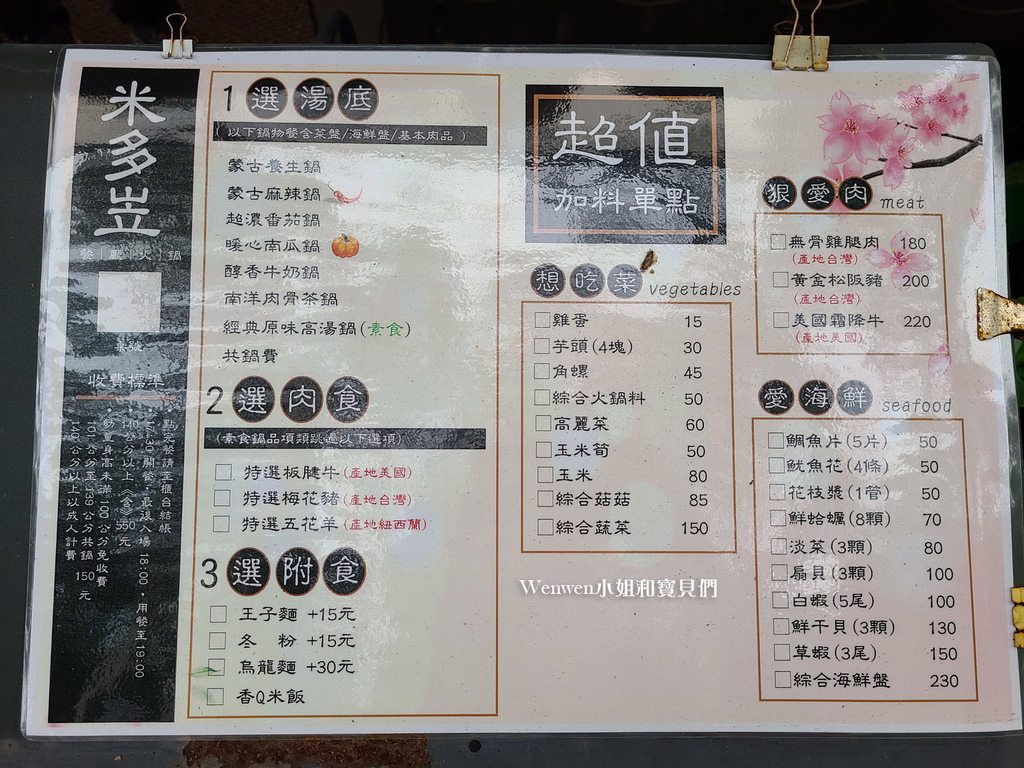 米多岦
餐|廳|火|鍋
收費標準
點完餐請至櫃台結帳
14:30開餐，最後入場18:00，用餐至19:00
140公分以上(含)550元
幼童身高未滿100公分免收費
101公分至139公分共鍋150元
140公分以上以成人計費
1 選湯底
(以下鍋物餐含菜盤/海鮮盤/基本肉品)
蒙古養生鍋
蒙古麻辣鍋
超濃番茄鍋
暖心南瓜鍋
醇香牛奶鍋
南洋肉骨茶鍋
經典原味高湯鍋(素食)
共鍋費
2 選肉食
(素食鍋品項類跳過以下選項)
特選板腱牛(產地美國)
特選梅花豬(產地台灣)
特選五花羊(產地紐西蘭)
3 選附食
王子麵 +15元
冬 粉 +15元
烏龍麵 +30元
香Q米飯
超值
加料單點
想吃菜 vegetables
雞蛋 15
芋頭(4塊) 30
角螺 45
綜合火鍋料 50
高麗菜 60
玉米筍 50
玉米 80
綜合菇菇 85
綜合蔬菜 150
狠愛肉 meat
無骨雞腿肉 180
(產地台灣)
黃金松阪豬 200
(產地台灣)
美國霜降牛 220
(產地美國)
愛海鮮 seafood
鯛魚片(5片) 50
魷魚花(4條) 50
花枝漿(1管) 50
鮮蛤蠣(8顆) 70
淡菜(3顆) 80
扇貝(3顆) 100
白蝦(5尾) 100
鮮干貝(3顆) 130
草蝦(3尾) 150
綜合海鮮盤 230
Wenwen小姐和寶貝們